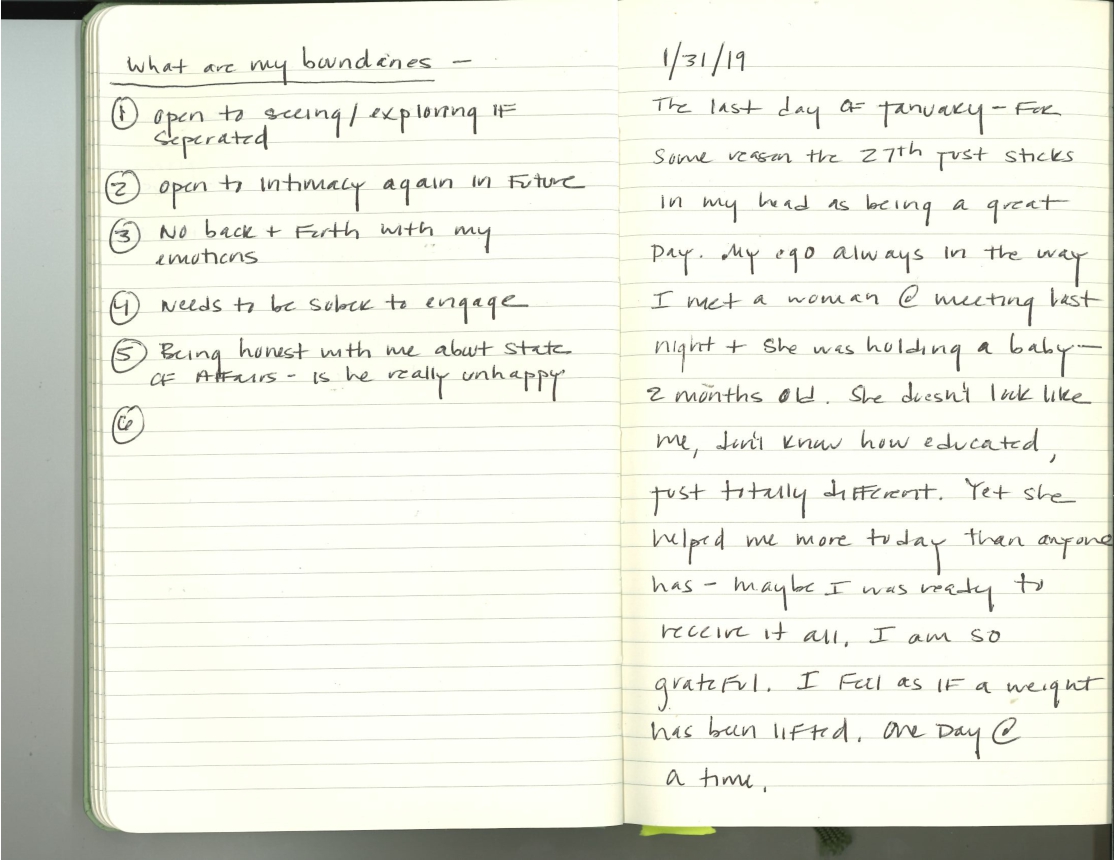 What are my boundaries —
① open to seeing / exploring IF
seperated
② open to intimacy again in Future
③ No back + Forth with my
emotions
④ Needs to be sober to engage
⑤ Being honest with me about State
OF AFFairs - is he really unhappy
⑥
1/31/19
The last day OF January - For
Some reason the 27th just sticks
in my head as being a great
Day. My ego always in the way
I met a woman @ meeting last
night + She was holding a baby —
2 months old. She doesn't look like
me, don't know how educated,
just totally different. Yet she
helped me more today than anyone
has - maybe I was ready to
receive it all. I am so
grateful. I Feel as IF a weight
has been lifted. One Day @
a time.